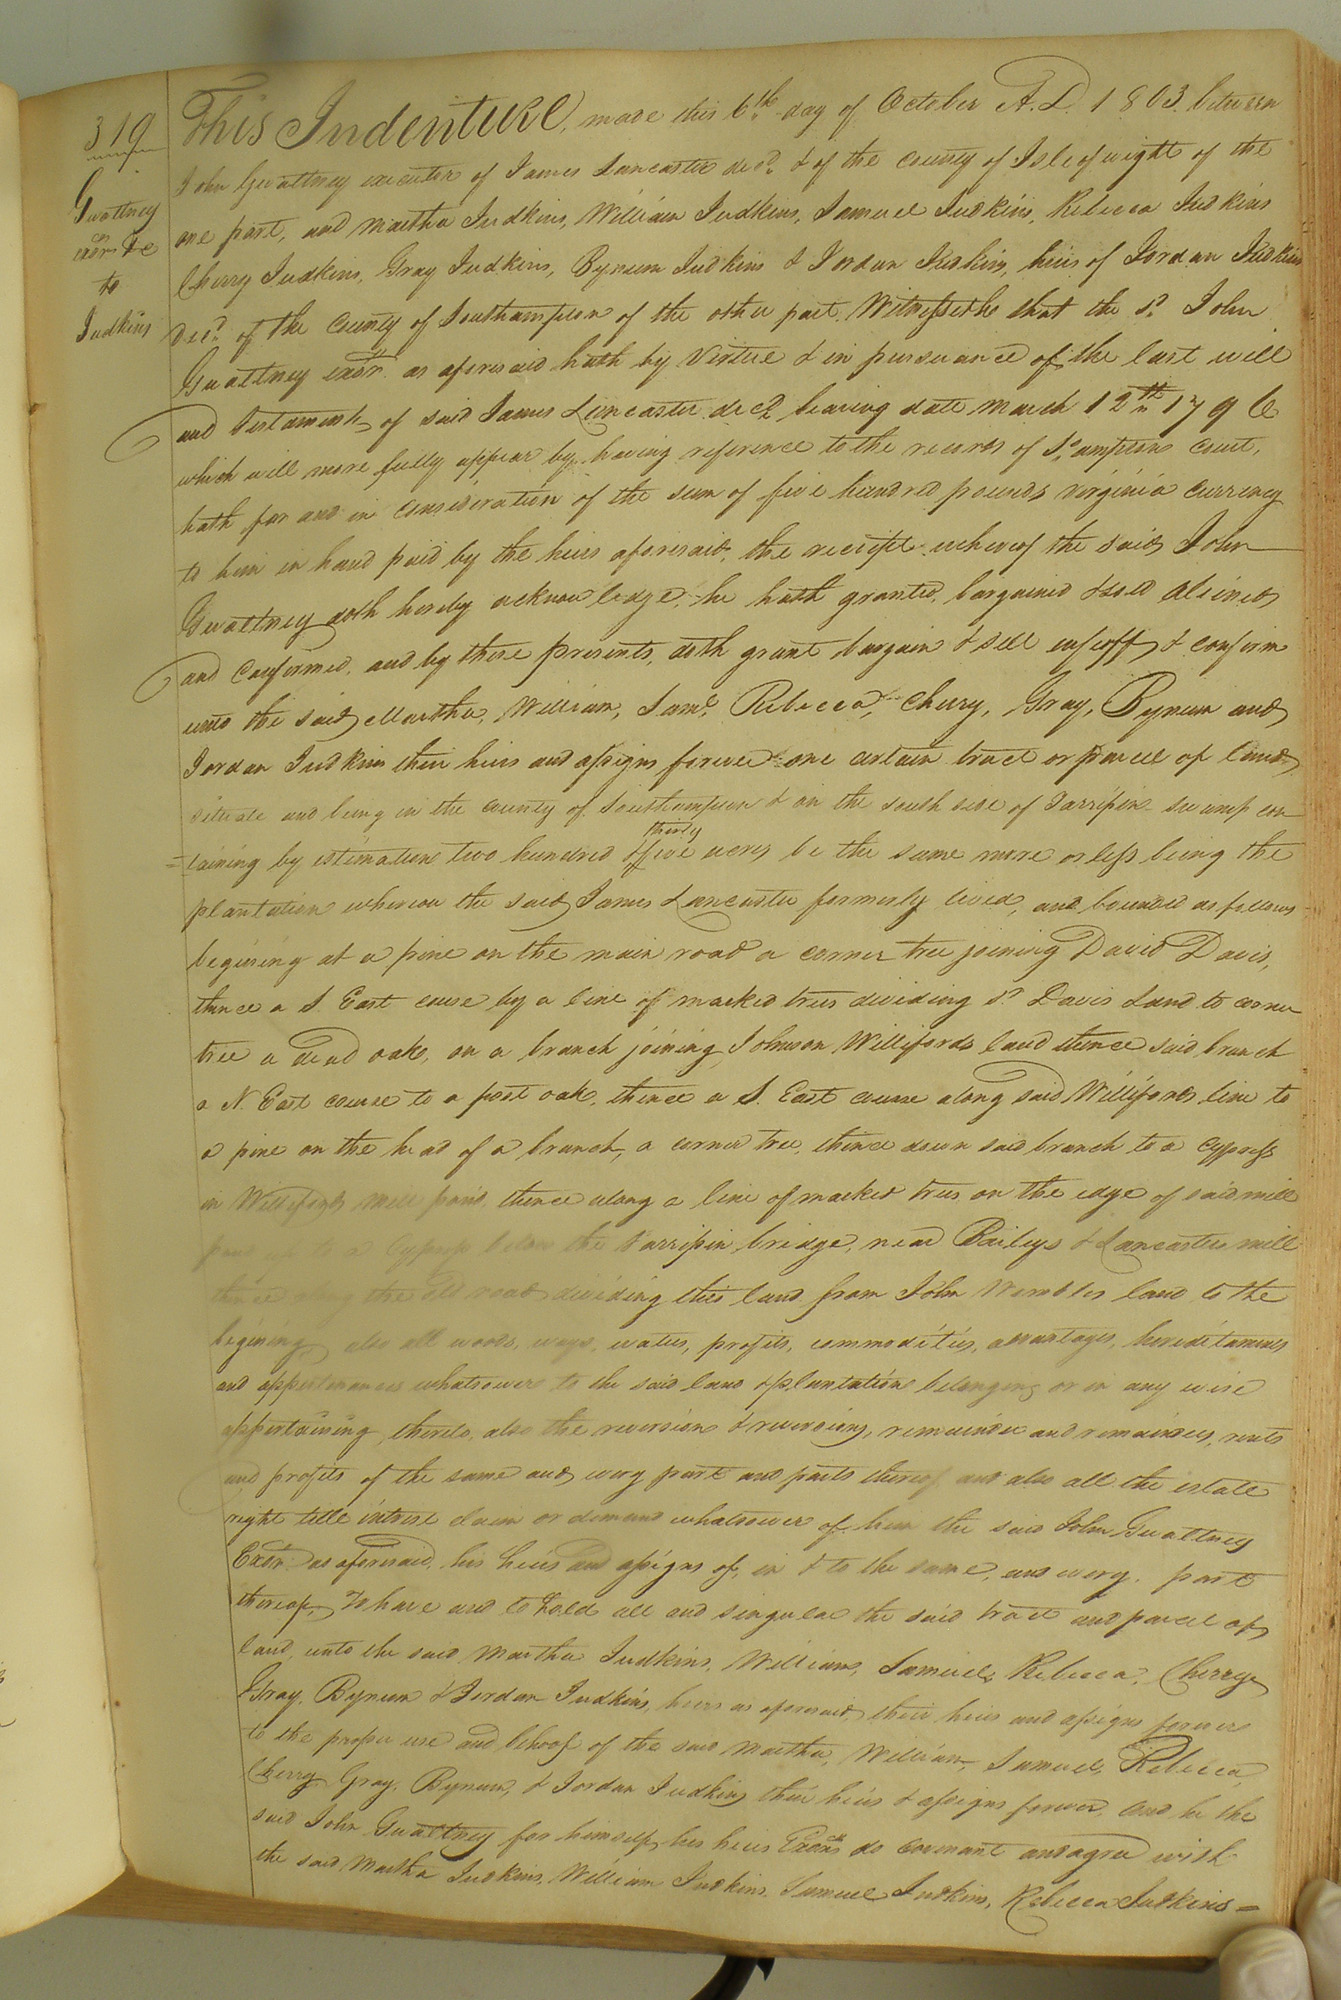 319
Gwaltney
exor &c
to
Judkins
This Indenture, made this 6th day of October A.D. 1803 between
John Gwaltney executor of James Lancaster decd. & of the county of Isle of wight of the
one part, and Martha Judkins, William Judkins, Samuel Judkins, Rebecca Judkins
Cherry Judkins, Gray Judkins, Bynum Judkins & Jordan Judkins, heirs of Jordan Judkins
Decd. of the County of Southampton of the other part. Witnesseth that the sd. John
Gwaltney exor. as aforesaid hath by Virtue & in pursuance of the last will
and Testament of said James Lancaster decd. bearing date march 12th 1796
which will more fully appear by having reference to the records of So.ampton court,
hath for and in consideration of the sum of five hundred pounds virginia currency
to him in hand paid by the heirs aforesaid, the receipt whereof the said John
Gwaltney doth hereby acknowledge, he hath granted, bargained & sold aliened
and confirmed, and by these presents, doth grant bargain & sell enfeoff & confirm
unto the said Martha, William, Saml. Rebecca, Cherry, Gray, Bynum and
Jordan Judkins their heirs and assigns forever one certain tract or parcel of land
situate and being in the county of Southampton & on the south side of Tarripin swamp con
=taining by estimation two hundred & thirty five acres be the same more or less being the
plantation whereon the said James Lancaster formerly lived, and bounded as follows
begining at a pine on the main road a corner tree joining David Davis,
thence a S. East course by a line of marked trees dividing sd. Davis Land to corner
tree a dead oak, on a branch joining Johnson Willifords land thence said branch
a N. East course to a post oak, thence a S. East course along said Willifords line to
a pine on the head of a branch, a corner tree, thence down said branch to a cypress
in Willifords mill pond, thence along a line of marked trees on the edge of said mill
pond up to a Cypress below the Tarripin bridge, near Baileys & Lancasters mill
thence along the old road dividing this land from John Wombles land to the
begining also all woods, ways, waters, profits, commodities, advantages, hereditaments
and appurtenances whatsoever to the said land & plantation belonging or in any wise
appertaining thereto, also the reversion & reversions, remainder and remainders, rents
and profits of the same and every part and parts thereof and also all the estate
right title intrest claim or demand whatsoever of him the said John Gwaltney
Exor. as aforesaid, his heirs and assigns of, in & to the same, and every part
thereof, To have and to hold all and singular the said tract and parcel of
land, unto the said Martha Judkins, William, Samuel, Rebecca, Cherry
Gray, Bynum & Jordan Judkins, heirs as aforesaid, their heirs and assigns forever
to the proper use and behoof of the said Martha, William, Samuel, Rebecca,
Cherry Gray, Bynum, & Jordan Judkins their heirs & assigns forever. And he the
said John Gwaltney for himself, his heirs Exors do covenant and agree with
the said Martha Judkins, William Judkins, Samuel Judkins, Rebecca Judkins=